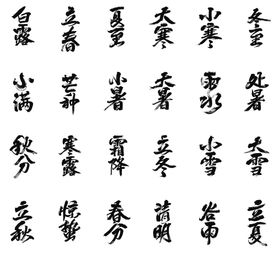 白露 立春 夏至 大寒 小寒 冬至
小满 芒种 小暑 大暑 雨水 处暑
秋分 寒露 霜降 立冬 小雪 大雪
立秋 惊蛰 春分 清明 谷雨 立夏